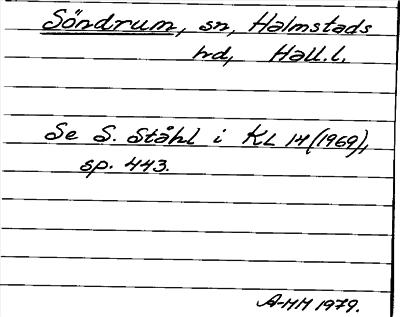 Söndrum, sn, Halmstads
hd, Hall.l.
Se S. Ståhl i KL 14 (1969),
sp. 443.
A-MH 1979.